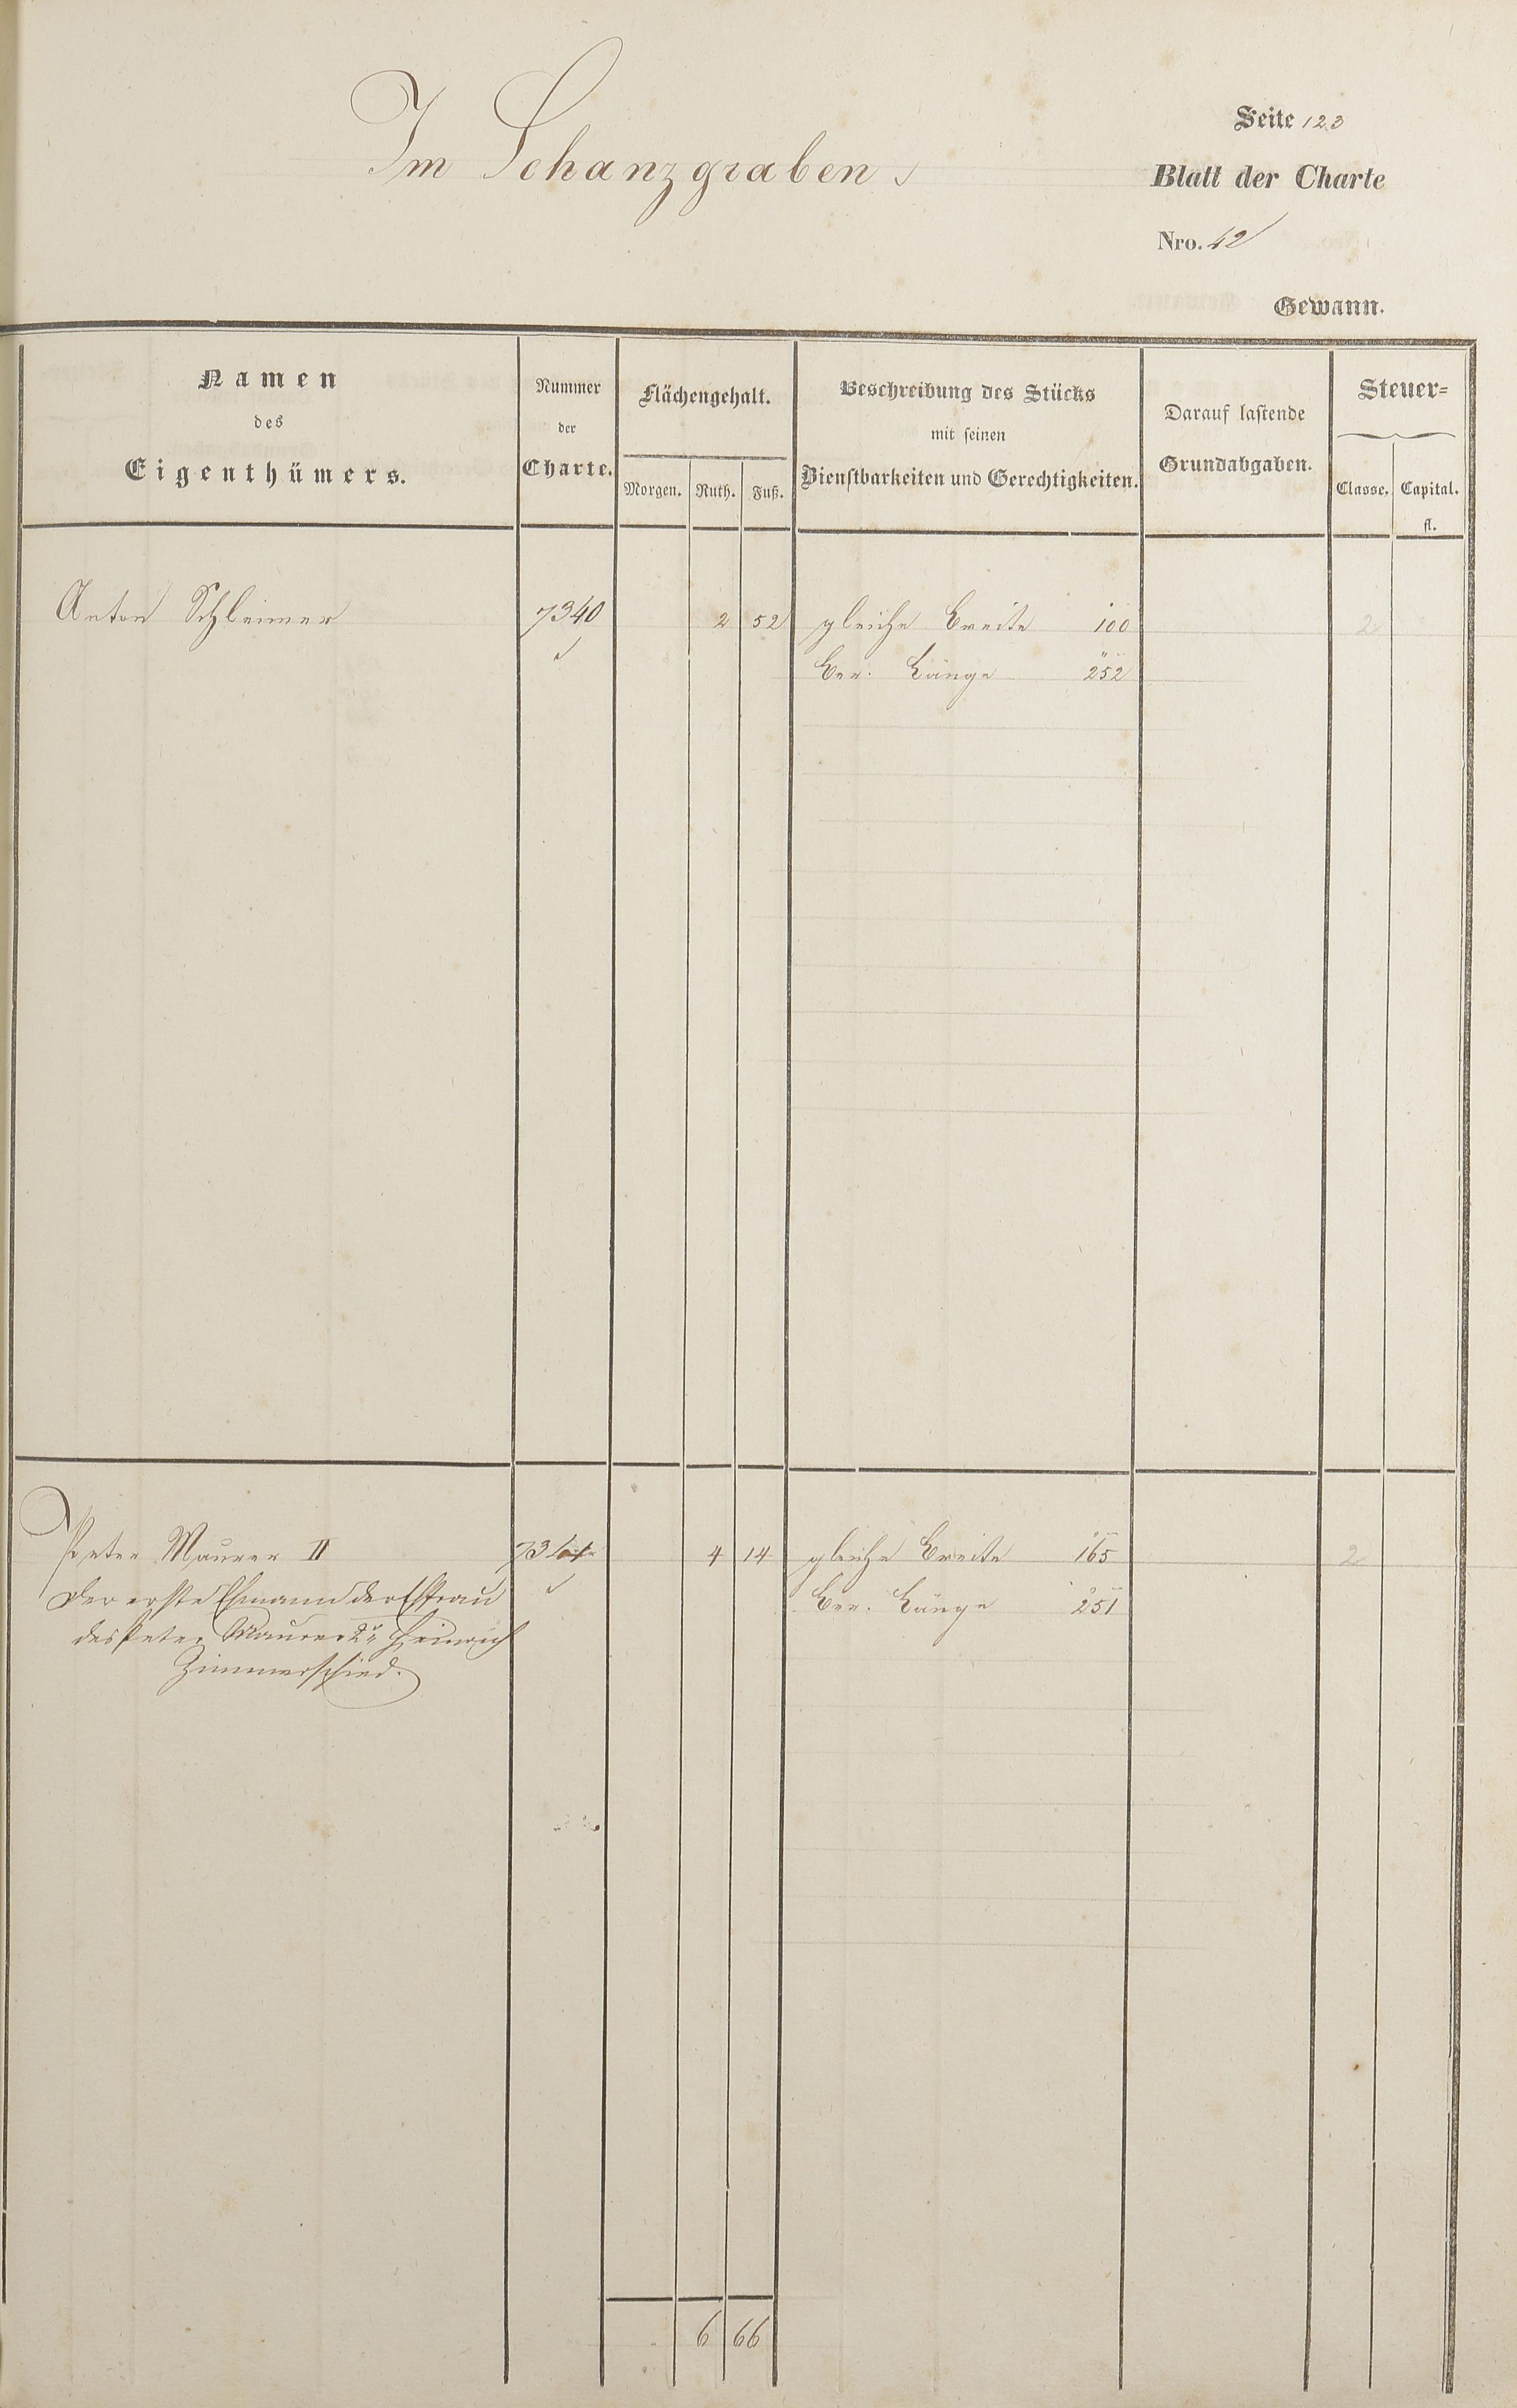 Im Schanzgraben
Seite 123
Blatt der Charte
Nro. 42
Gewann.
Namen
des
Eigenthümers.
Nummer
der
Charte.
Flächengehalt.
Morgen. Ruth. Fuß.
Beschreibung des Stücks
mit seinen
Dienstbarkeiten und Gerechtigkeiten.
Darauf lastende
Grundabgaben.
Steuer=
Classe. Capital.
fl.
Anton Schleimer 7340 2 52 gleiche Breite 100 2
Ber. Länge 252
Peter Maurer II 7341 4 14 gleiche Breite 165 2
Der erste Ehmann der Ehfrau Ber. Länge 251
des Peter Maurer 2r Heinrich
Zimmerschied.
6 66